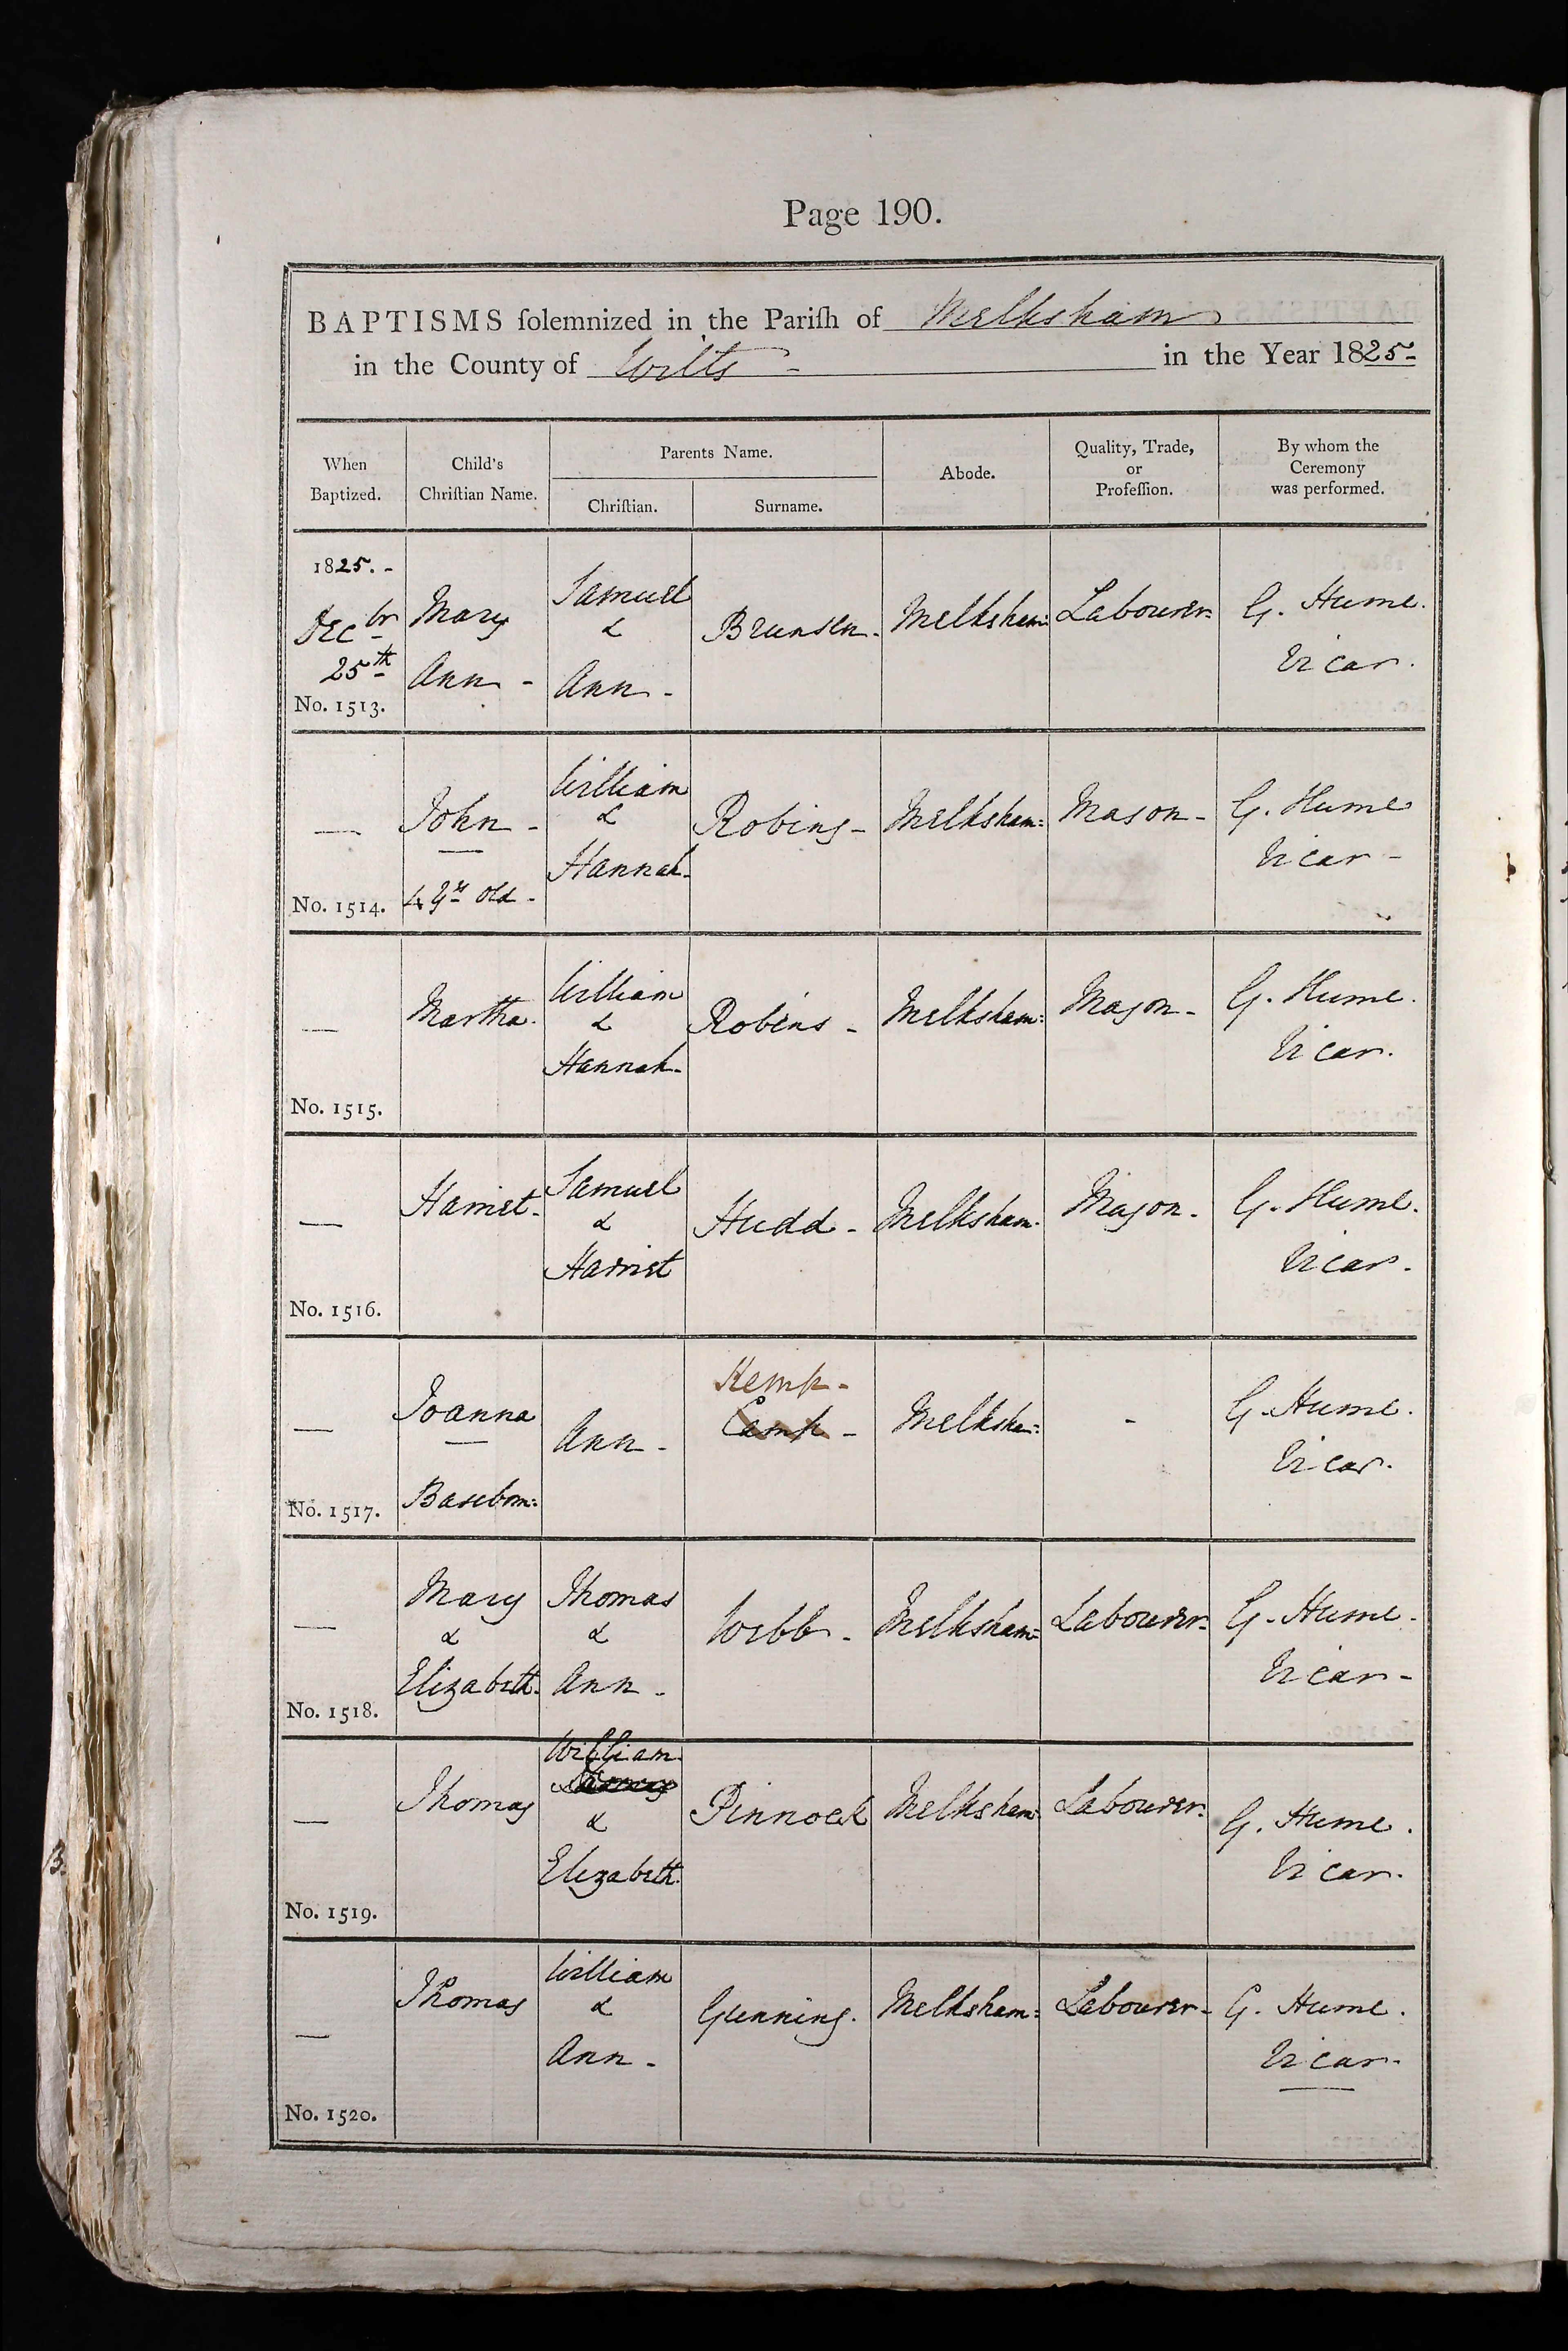 Page 190.
BAPTISMS ſolemnized in the Pariſh of Melksham
in the County of Wilts - in the Year 1825-
When
Baptized.
Child's
Chriſtian Name.
Parents Name.
Chriſtian.
Surname.
Abode.
Quality, Trade,
or
Profeſſion.
By whom the
Ceremony
was performed.
1825.-
Decbr
25th
No. 1513.
Mary
Ann -
Samuel
&
Ann -
Brunsen.
Melksham:
Labourer-
G. Hume.
Vicar.
—
No. 1514.
John -
4 yrs old -
William
&
Hannah-
Robins -
Melksham:
Mason -
G. Hume
Vicar -
—
No. 1515.
Martha.
William
&
Hannah-
Robins -
Melksham:
Mason -
G. Hume.
Vicar.
—
No. 1516.
Harriet-
Samuel
&
Harriet
Hudd -
Melksham.
Mason -
G. Hume.
Vicar.
—
No. 1517.
Joanna
Baseborn:
Ann -
Kemp -
Camp -
Melksham:
-
G. Hume.
Vicar.
—
No. 1518.
Mary
&
Elizabeth.
Thomas
&
Ann -
Webb -
Melksham:
Labourer-
G. Hume.
Vicar -
—
No. 1519.
Thomas
William
&
Elizabeth.
Pinnock
Melksham:
Labourer.
G. Hume.
Vicar.
—
No. 1520.
Thomas
William
&
Ann -
Gunning.
Melksham:
Labourer -
G. Hume.
Vicar.